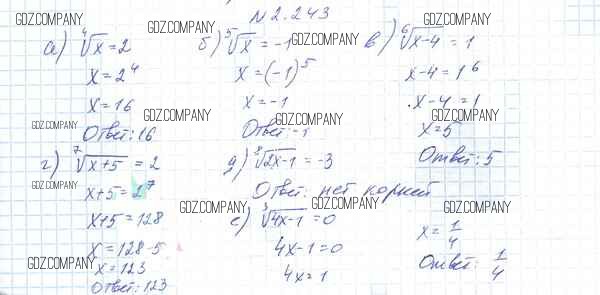 N 2.243
а) ⁴√x = 2
x = 2⁴
x = 16
Ответ: 16
б) ⁵√x = -1
x = (-1)⁵
x = -1
Ответ: -1
в) ⁶√x-4 = 1
x-4 = 1⁶
x-4 = 1
x = 5
Ответ: 5
г) ⁷√x+5 = 2
x+5 = 2⁷
x+5 = 128
x = 128-5
x = 123
Ответ: 123
д) ⁸√2x-1 = -3
Ответ: нет корней
е) ³√4x-1 = 0
4x-1 = 0
4x = 1
x = 1/4
Ответ: 1/4
GDZ.COMPANY
GDZ.COMPANY
GDZ.COMPANY
GDZ.COMPANY
GDZ.COMPANY
GDZ.COMPANY
GDZ.COMPANY
GDZ.COMPANY
GDZ.COMPANY
GDZ.COMPANY
GDZ.COMPANY
GDZ.COMPANY
GDZ.COMPANY
GDZ.COMPANY